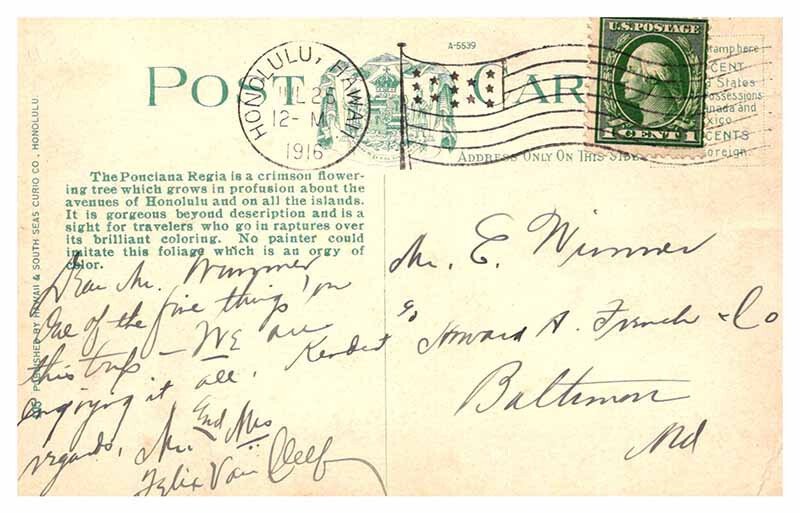 A-5539
POST CARD
HONOLULU, HAWAII
JUL 25
12-M
1916
U.S. POSTAGE
1 CENT 1
stamp here
CENT
States
Possessions
Canada and
Mexico
CENTS
Foreign.
ADDRESS ONLY ON THIS SIDE
PUBLISHED BY HAWAII & SOUTH SEAS CURIO CO., HONOLULU.
The Ponciana Regia is a crimson flower-
ing tree which grows in profusion about the
avenues of Honolulu and on all the islands.
It is gorgeous beyond description and is a
sight for travelers who go in raptures over
its brilliant coloring. No painter could
imitate this foliage which is an orgy of
color.
Dear Mr. Wimmer
One of the fine things on
this trip — We are
enjoying it all. Kindest
regards, Mr. and Mrs
Felix Van Cleef
Mr. E. Wimmer
c/o Howard A. French & Co
Baltimore
Md